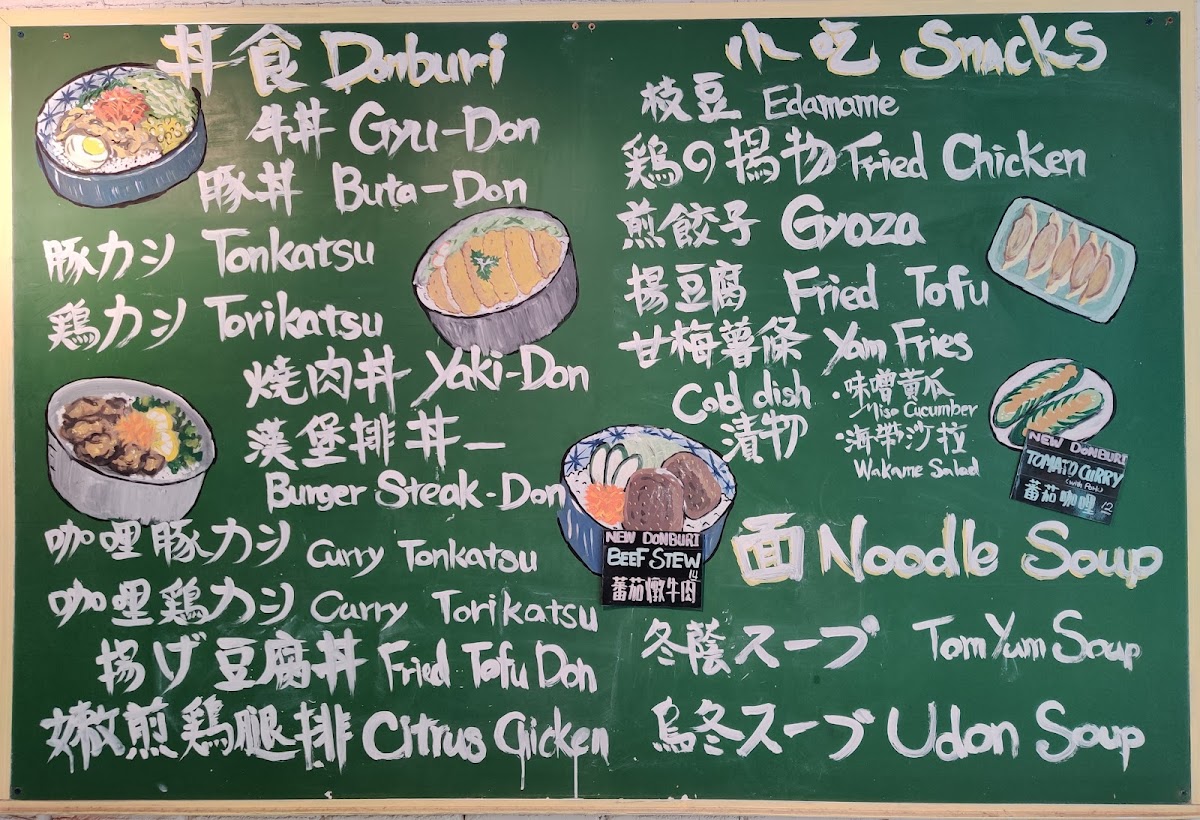 丼食 Donburi
牛丼 Gyu-Don
豚丼 Buta-Don
豚カシ Tonkatsu
鶏カシ Torikatsu
燒肉丼 Yaki-Don
漢堡排丼
Burger Steak-Don
咖哩豚カシ Curry Tonkatsu
咖哩鶏カシ Curry Torikatsu
揚げ豆腐丼 Fried Tofu Don
嫩煎鶏腿排 Citrus Cicken
NEW DONBURI
BEEF STEW
14
蕃茄燉牛肉
小吃 Snacks
枝豆 Edamame
鶏の揚物 Fried Chicken
煎餃子 Gyoza
揚豆腐 Fried Tofu
甘梅薯條 Yam Fries
Cold dish
漬物
・味噌黄瓜
Miso Cucumber
・海帶沙拉
Wakame Salad
NEW DONBURI
TOMATO CURRY
(with Pork)
蕃茄咖哩 12
面 Noodle Soup
冬蔭スープ Tom Yum Soup
烏冬スープ Udon Soup